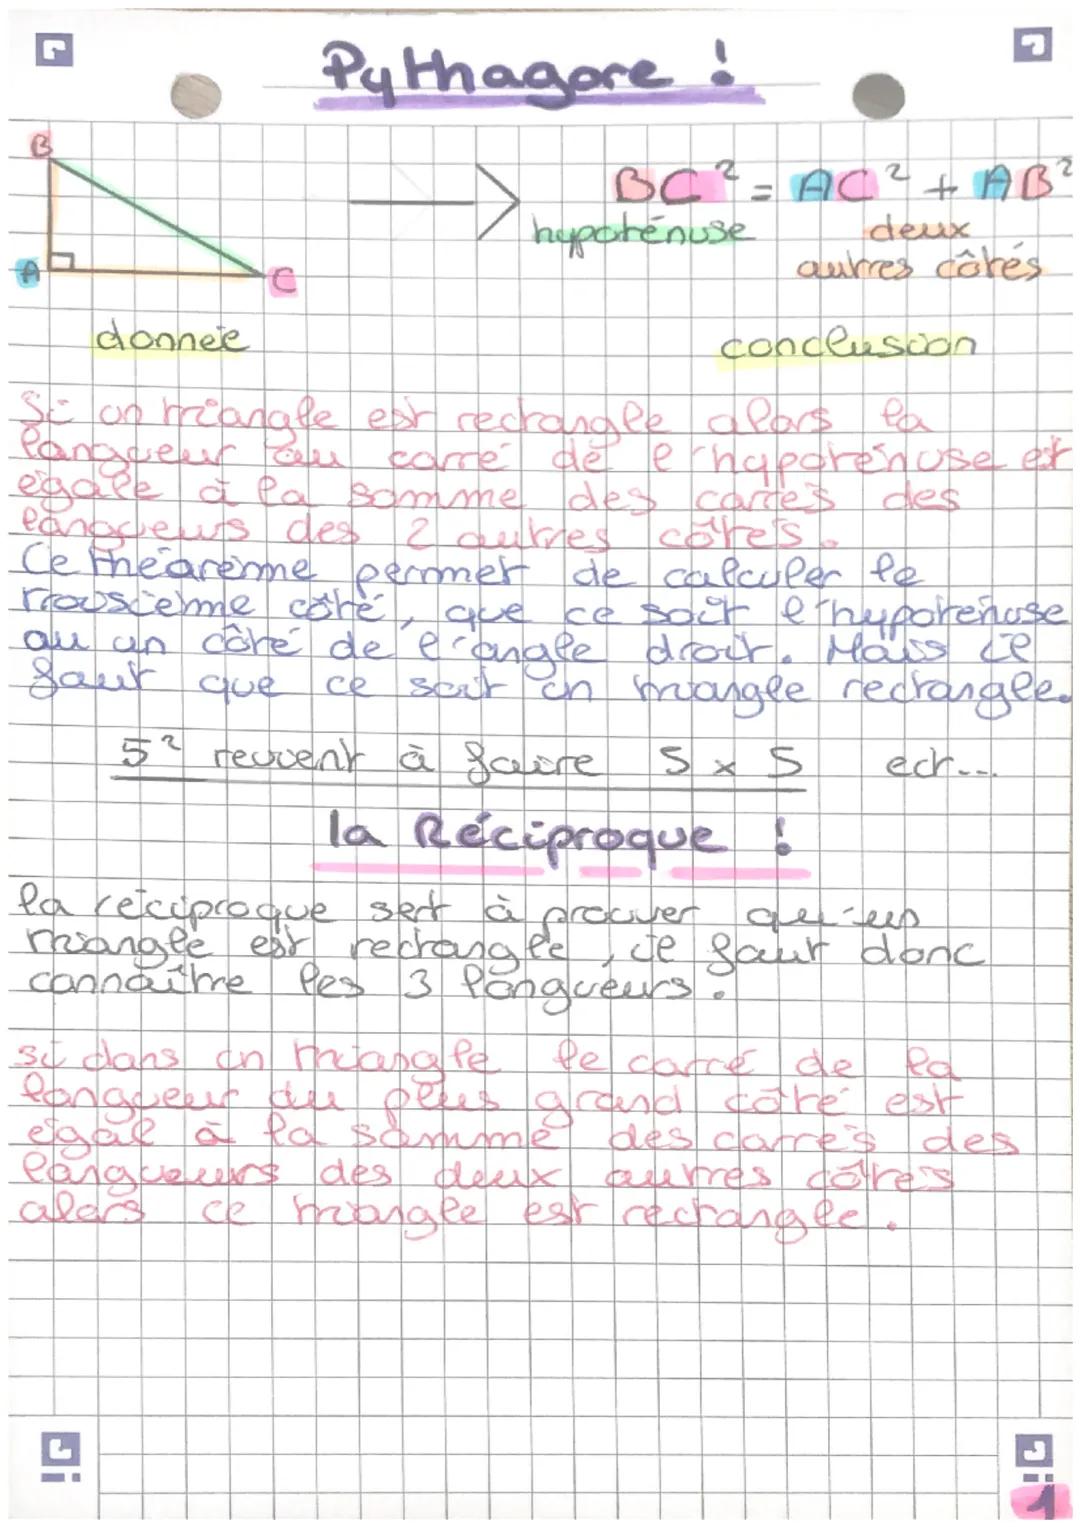 Pythagore !
B
BC² = AC² + AB²
hypoténuse deux
autres côtés
A C
donnée conclusion
Si un triangle est rectangle alors la
longueur au carré de l'hypoténuse est
égale à la somme des carrés des
longueurs des 2 autres côtés.
Ce théorème permet de calculer le
troisième côté, que ce soit l'hypoténuse
ou un côté de l'angle droit. Mais il
faut que ce soit un triangle rectangle.
5² revient à faire 5 x 5 ect...
la Réciproque !
la réciproque sert à prouver qu'un
triangle est rectangle, il faut donc
connaître les 3 longueurs.
si dans un triangle le carré de la
longueur du plus grand côté est
égal à la somme des carrés des
longueurs des deux autres côtés
alors ce triangle est rectangle.
1